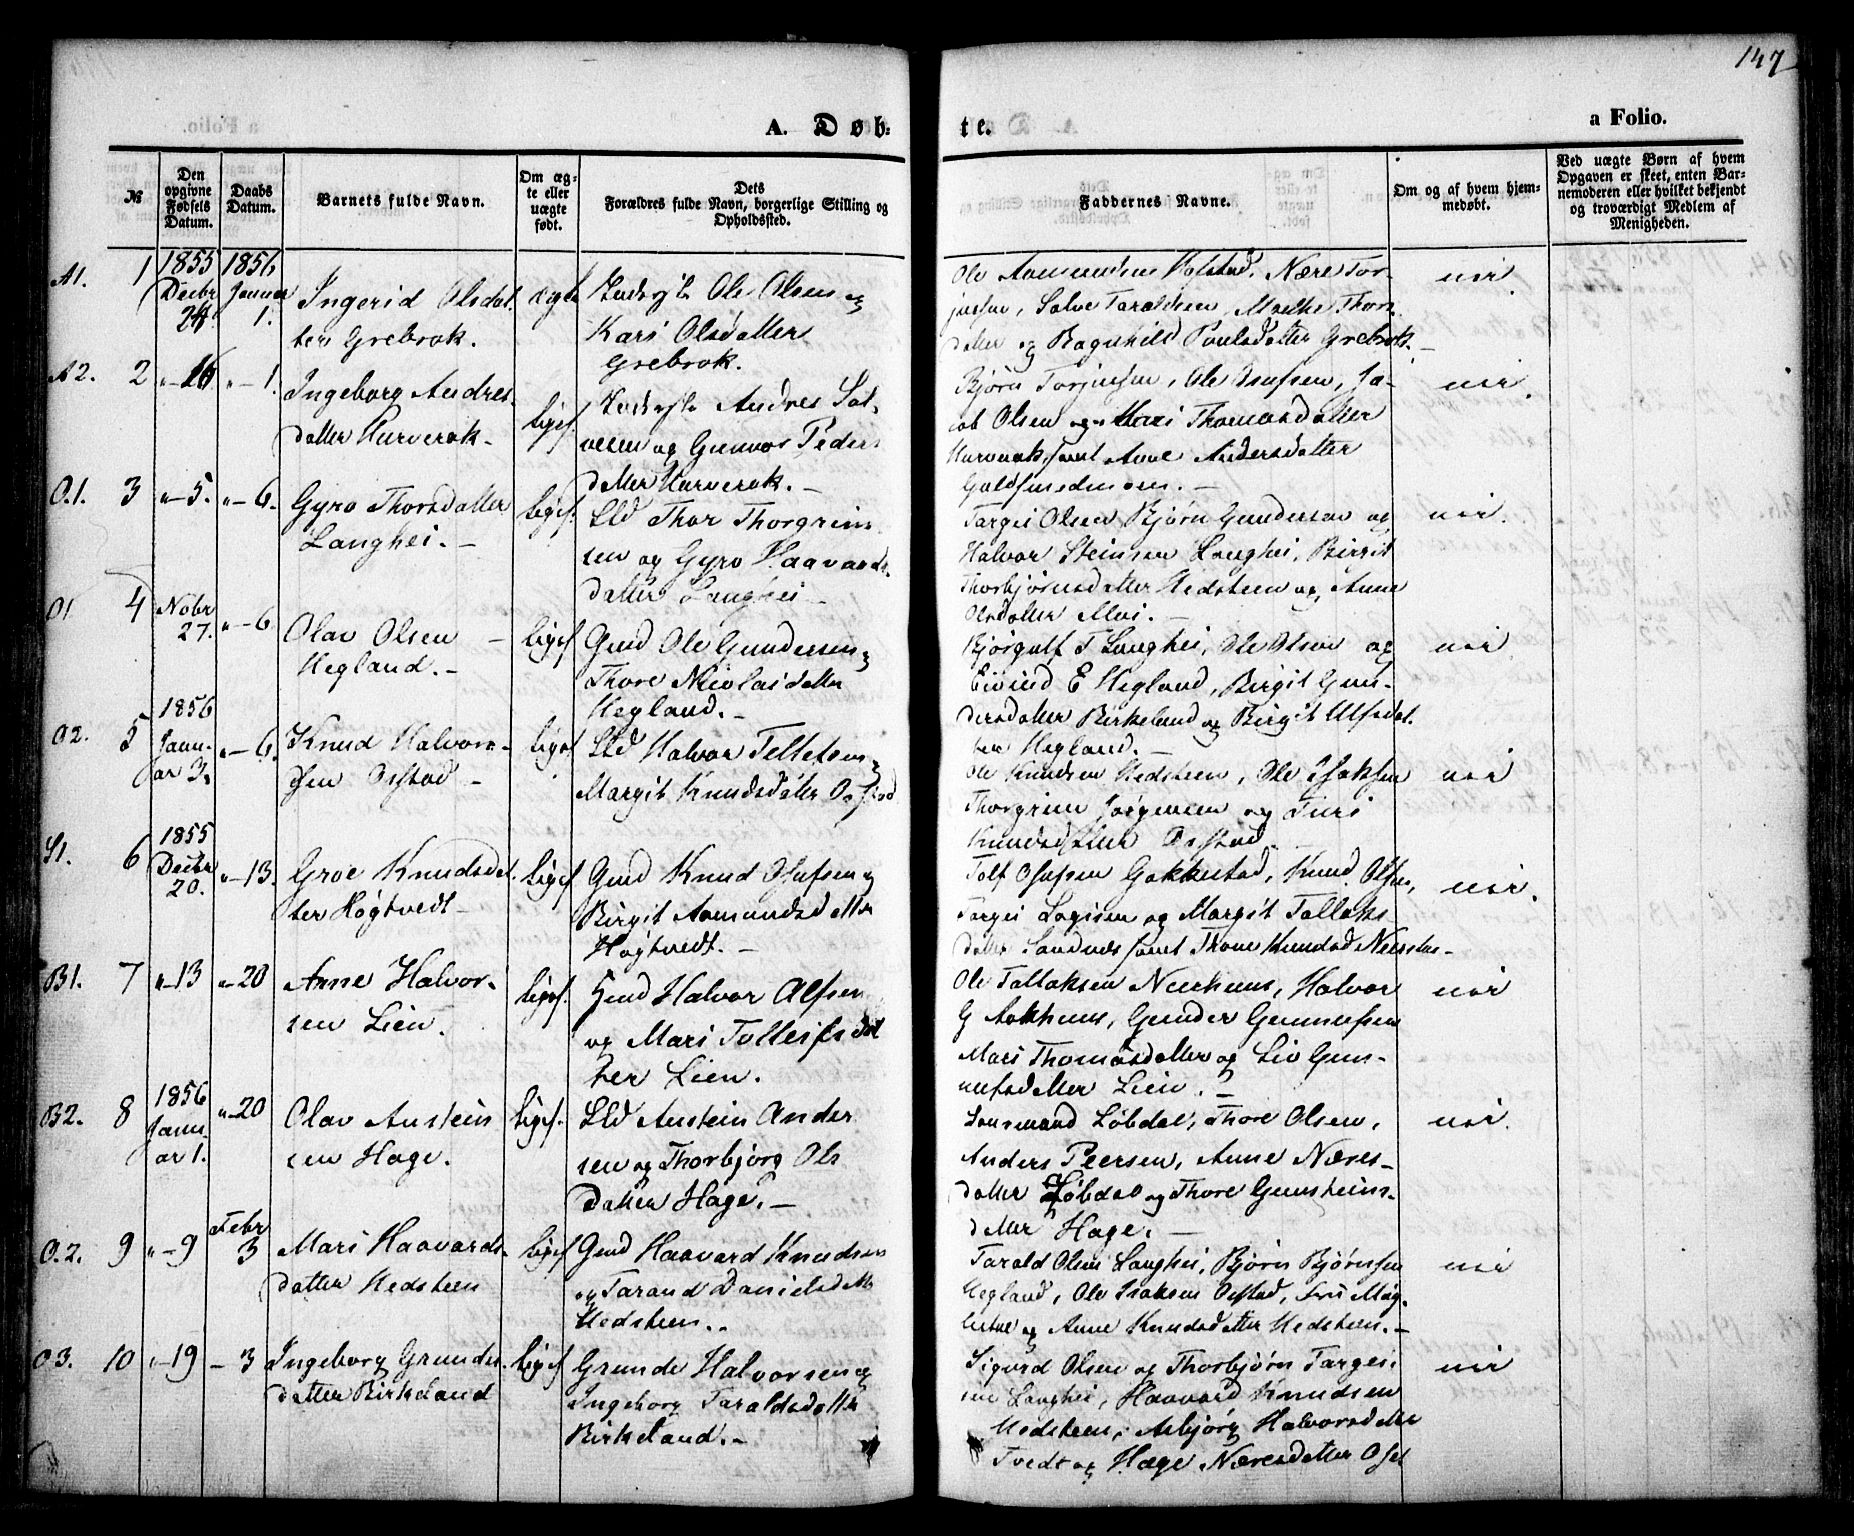 147
A. Døb-
te.
a Folio.
№
Den opgivne Fødsels Datum.
Daabs Datum.
Barnets fulde Navn.
Om ægte eller uægte født.
Dets Forældres fulde Navn, borgerlige Stilling og Opholdssted.
Faddernes Navne.
Om og af hvem hjemmedøbt.
Ved uægte Børn af hvem Opgaven er skeet, enten Barnemoderen eller hvilket bekjendt og troværdigt Medlem af Menigheden.
A1. 1 1855 Decbr 24. 1856 Januar 1.
Ingerid Olsdat-
ter Grebrok.
ægte
Ole Olsen og
Kari Olsdatter
Grebrok.
Ole Aamundsen Nære Tor-
jussen, Salve Taraldsen, Thors-
datter og Ragnhild Poulsdatter Grebrok.
nei.
A2. 2 "-16 "-1.
Ingeborg Andres-
datter Hurverok-
liges.
Andres Sal-
vesen og Gunvor Peders
datter Hurverok.-
Bjørn Torjussen, Ole Ja-
cob Olsen og Mari Thomasdatter
Hurverok samt Anne Andersdatter
nei.
O.1. 3 "-5. "-6.
Gyro Thorsdatter
Langhei.-
ligef.
Lld Thor Thorgrim
sen og Gyro Haavards-
datter Langhei-
Targei Olsen Bjørn Gundersen og
Halvor Steinsen Langhei, Birgit
Thorbjørnsdatter Hedsteen og Anne
Olsdatter
nei.
O1 4 Nobr 27. "-6
Olav Olsen -
Hegland.-
ligef
Gmd Ole Gundersen og
Thore Nicolaidatter
Hegland.-
Bjørgulf T Langhei, Ole Olsen og
Eivind E Hegland, Birgit Gun-
dersdatter Birkeland og Birgit Ulfsdat-
ter Hegland.-
nei
O2. 5 1856 Janu-ar 3. "-6.
Knud Halvor-
sen Ofstad -
ligef
Lld Halvor Tellefsen og
Margit Knudsdatter Ofstad
Ole Knudsen Hedsteen, Ole Isaksen
Thorgrim Jørgensen og Turi
Knudsdatter Ofstad.-
nei
S1. 6 1855 Decbr 20. "-13.
Groe Knudsdat-
ter Høgtvedt-
ligef
Gmd Knud Olufsen og
Birgit Aamundsdatter
Høgtvedt.-
Tolf Olufsen Gakkestad, Knud Olsen,
Targei og Margit Tallaks
datter Sandnæs samt Thone Knudsd
nei.
B1. 7 "-13 "-20
Anne Halvor-
sen Lien.
ligef.
Gmd Halvor Alfsen
og Mari Tolleifsdat
ter Lien.
Ole Tallaksen Neerhuus, Halvor
G Aakhuus, Gunder Gunnufsen
Mari Thomasdatter og Liv Gun-
nufsdatter Lien.-
nei
B2. 8 1856 Janu-ar 1. "-20
Olav Austein
sen Hage.
ligef.
Lld Austein Ander
sen og Thorbjørg Ols
datter Hage.-
Lensmand Løbdal, Thore Olsen,
Anders Peersen, Anne Næres-
datter Løbdal og Thore Gunsteins-
datter Hage.-
nei.
O.2. 9 "-9 Febr 3
Mari Haavards-
datter Hedsteen
ligef
Gmd Haavard Knudsen
og Tarand Danielsdatter
Hedsteen.-
Tarald Olsen Langhei, Bjørn Bjørnsen
Hegland, Ole Isaksen Ofstad,
og Anne Knudsdatter Hedsteen.-
nei
O3. 10 "-19 -3
Ingeborg Grundes-
datter Birkeland
ligef
Grunde Halvorsen og
Ingeborg Taraldsdatter
Birkeland.-
Sigurd Olsen og Thorbjørn Targei-
sen Langhei, Haavard Knudsen
Hedsteen, Asbjørg Halvorsdatter
Tvedt og Hæge Næresdatter
nei